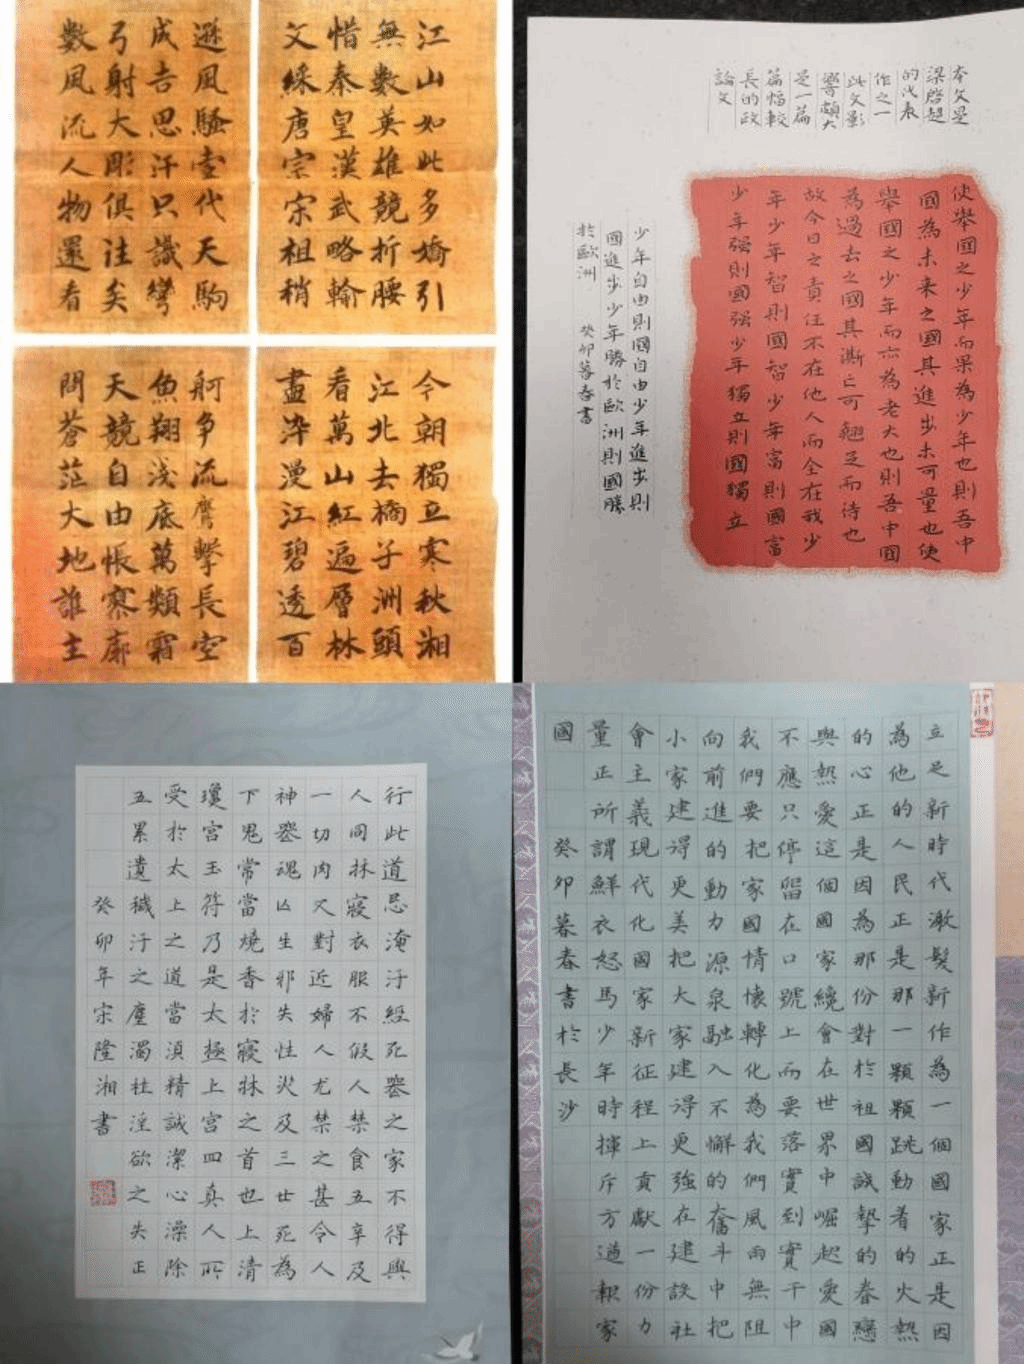 江山如此多嬌引
無數英雄競折腰
惜秦皇漢武略輸
文綵唐宗宋祖稍
遜風騷壹代天駒
成吉思汗只識彎
弓射大彫俱往矣
數風流人物還看
今朝獨立寒秋湘
江北去橘子洲頭
看萬山紅遍層林
盡染漫江碧透百
舸争流鷹擊長空
魚翔淺底萬類霜
天競自由悵寥廓
問蒼茫大地誰主
本文是
梁啓超
的代表
作之一
此文影
響頗大
是一篇
篇幅較
長的政
論文
使舉國之少年而果為少年也則吾中
國為未来之國其進步未可量也使
舉國之少年而亦為老大也則吾中國
為過去之國其澌亡可翹足而待也
故今日之責任不在他人而全在我少
年少年智則國智少年富則國富
少年强則國强少年獨立則國獨立
少年自由則國自由少年進步則
國進步少年勝於歐洲則國勝
於歐洲 癸卯暮春書
行此道忌淹汙經死喪之家不得與
人同床寢衣服不假人禁食五辛及
一切肉又對近婦人尤禁之甚令人
神喪魂亡生邪失性災及三世死為
下鬼常當燒香於寢牀之首也上清
瓊宮玉符乃是太極上宮四真人所
受於太上之道當須精誠潔心澡除
五累遺穢汙之塵濁杜淫欲之失正
癸卯年宋隆湘書
立足新時代激發新作為一個國家正是因
為他的人民正是那一顆顆跳動着的火熱
的心正是因為那份對於祖國誠摯的眷戀
與熱愛這個國家纔會在世界中崛起愛國
不應只停留在口號上而要落實到實干中
我們要把家國情懷轉化為我們風雨無阻
向前進的動力源泉融入不懈的奮斗中把
小家建得更美把大家建得更強在建設社
會主義現代化國家新征程上貢獻一份力
量正所謂鮮衣怒馬少年時揮斥方遒報家
國 癸卯暮春書於長沙